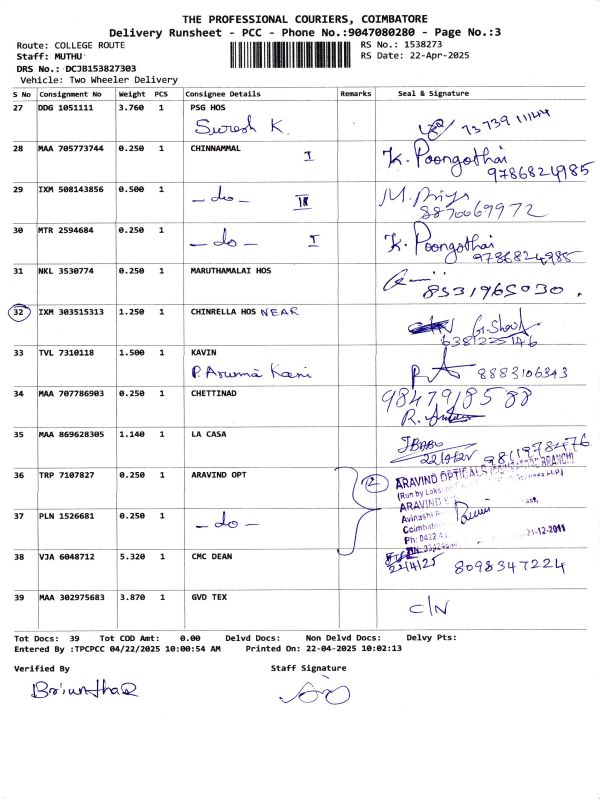 THE PROFESSIONAL COURIERS, COIMBATORE
Delivery Runsheet - PCC - Phone No.:9047080280 - Page No.:3
Route: COLLEGE ROUTE RS No.: 1538273
Staff: MUTHU RS Date: 22-Apr-2025
DRS No.: DCJB153827303
Vehicle: Two Wheeler Delivery
S No Consignment No Weight PCS Consignee Details Remarks Seal & Signature
27 DDG 1051111 3.760 1 PSG HOS
Suresh K.
28 MAA 705773744 0.250 1 CHINNAMMAL I K. Poongothai
9786824985
29 IXM 508143856 0.500 1 - do - M. Priya
8870069972
30 MTR 2594684 0.250 1 - do - I K. Poongothai
9786824985
31 NKL 3530774 0.250 1 MARUTHAMALAI HOS
8531965030.
32 IXM 303515313 1.250 1 CHINRELLA HOS NEAR
6381225146
33 TVL 7310118 1.500 1 KAVIN
P. Aruma Kani 8883106343
34 MAA 707786903 0.250 1 CHETTINAD 9847918588
R.
35 MAA 869628305 1.140 1 LA CASA
22/4/25 9811978476
36 TRP 7107827 0.250 1 ARAVIND OPT 2 ARAVIND OPTICALS
(Run by
ARAVIND
37 PLN 1526681 0.250 1 - do - Avinashi
Coimbatore
Ph: 0422 21-12-2011
38 VJA 6048712 5.320 1 CMC DEAN
22/4/25 8098347224
39 MAA 302975683 3.870 1 GVD TEX C/N
Tot Docs: 39 Tot COD Amt: 0.00 Delvd Docs: Non Delvd Docs: Delvy Pts:
Entered By :TPCPCC 04/22/2025 10:00:54 AM Printed On: 22-04-2025 10:02:13
Verified By Staff Signature